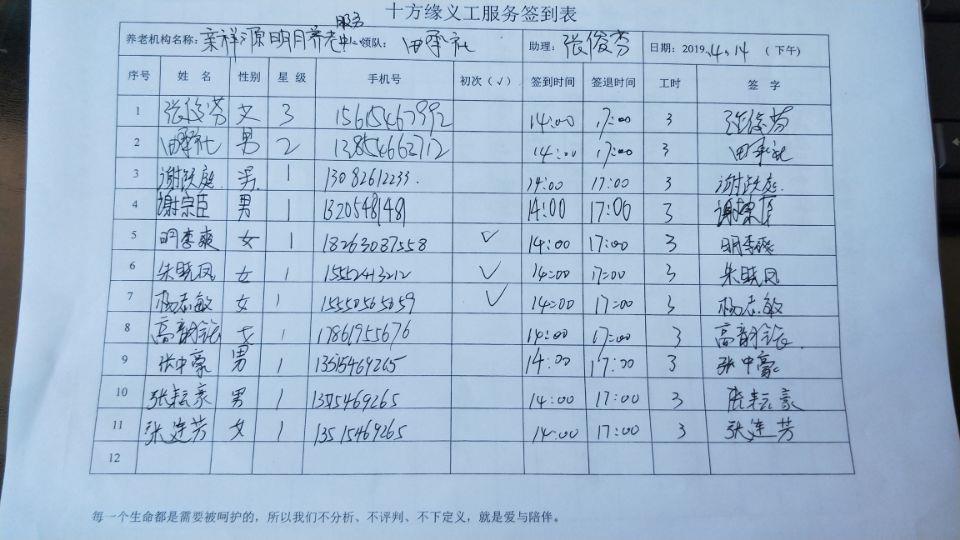 十方缘义工服务签到表
养老机构名称：亲祥源明月养老服务中心 领队：田承社 助理：张俊芬 日期：2019.4.14（下午）
序号 姓名 性别 星级 手机号 初次（√） 签到时间 签退时间 工时 签字
1 张俊芬 女 3 15615467992 14:00 17:00 3 张俊芬
2 田承社 男 2 13854663712 14:00 17:00 3 田承社
3 谢跃庭 男 1 13082612233 14:00 17:00 3 谢跃庭
4 谢宗臣 男 1 13205481481 14:00 17:00 3 谢宗臣
5 明李爽 女 1 18263037558 √ 14:00 17:00 3 明李爽
6 朱晓凤 女 1 15552413212 √ 14:00 17:00 3 朱晓凤
7 杨志敏 女 1 15550565059 √ 14:00 17:00 3 杨志敏
8 高韵 女 1 17861955676 14:00 17:00 3 高韵
9 张中豪 男 1 13515469265 14:00 17:00 3 张中豪
10 张耘豪 男 1 13515469265 14:00 17:00 3 张耘豪
11 张建芳 女 1 13515469265 14:00 17:00 3 张建芳
12
每一个生命都是需要被呵护的，所以我们不分析、不评判、不下定义，就是爱与陪伴。